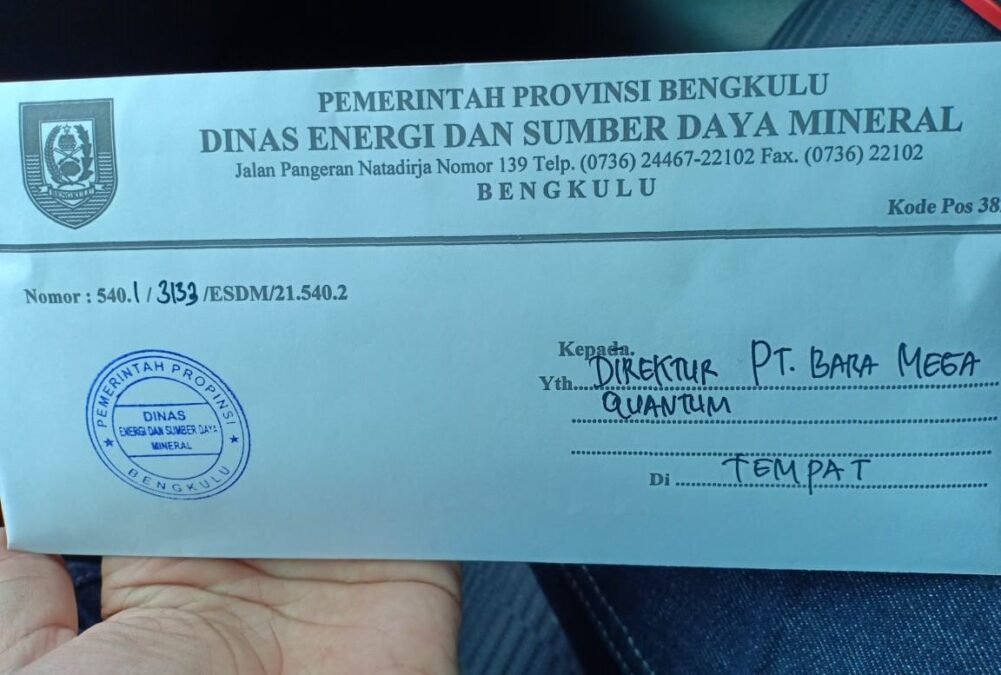 PEMERINTAH PROVINSI BENGKULU
DINAS ENERGI DAN SUMBER DAYA MINERAL
Jalan Pangeran Natadirja Nomor 139 Telp. (0736) 24467-22102 Fax. (0736) 22102
BENGKULU
Kode Pos 38
BENGKULU
Nomor : 540.1 / 3133 /ESDM/21.540.2
Kepada.
Yth...DIREKTUR PT. BARA MEGA
QUANTUM
Di ... TEMPAT
PEMERINTAH PROPINSI
DINAS
ENERGI DAN SUMBER DAYA
MINERAL
BENGKULU